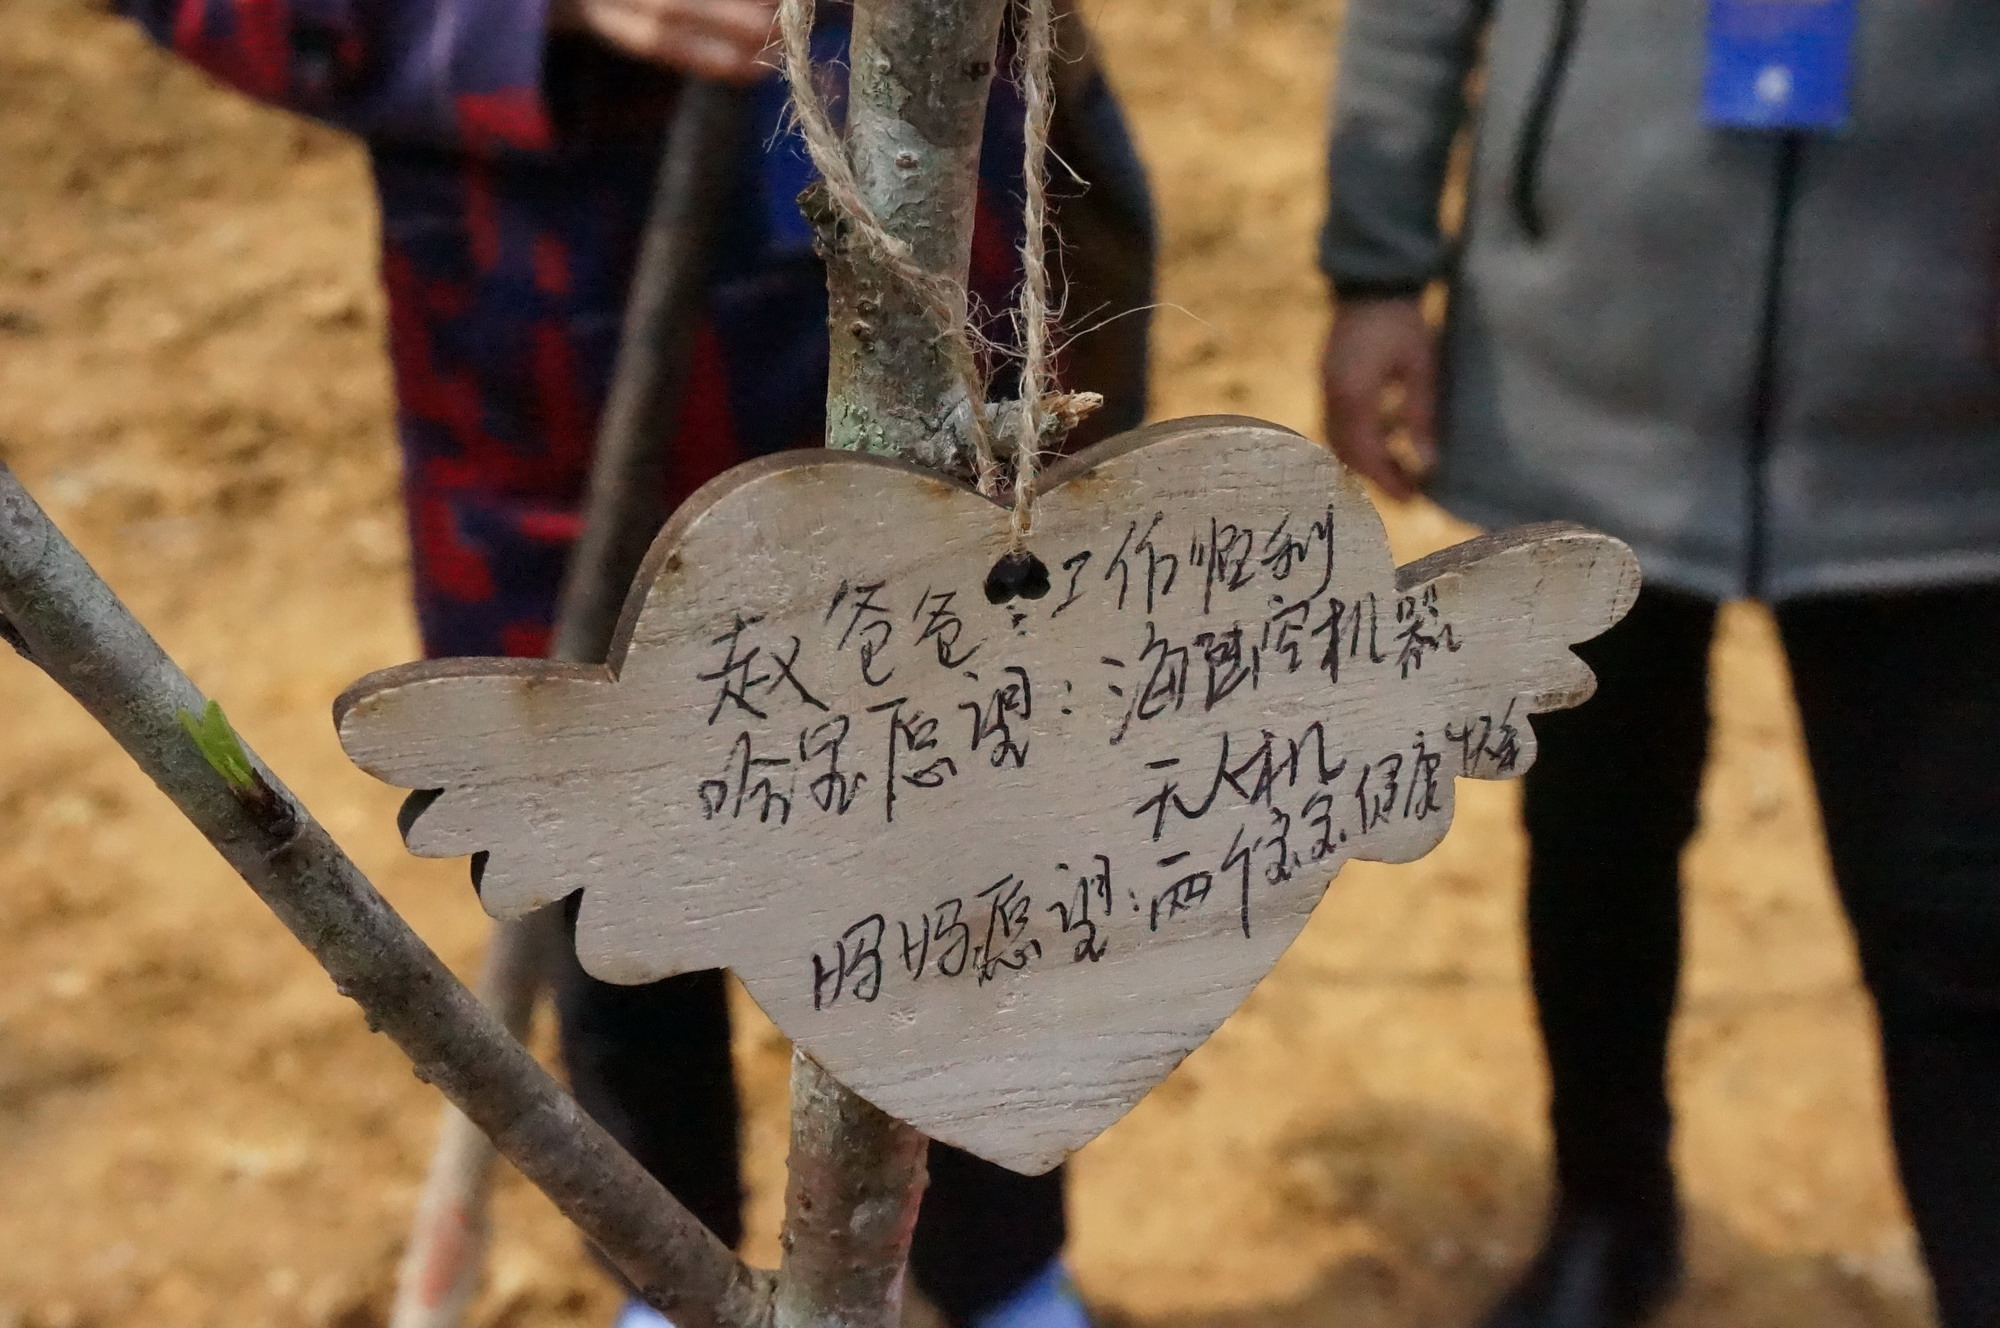 赵爸爸：工作顺利
哈宝愿望：海陆空机器
无人机
妈妈愿望：两个宝宝健康快乐